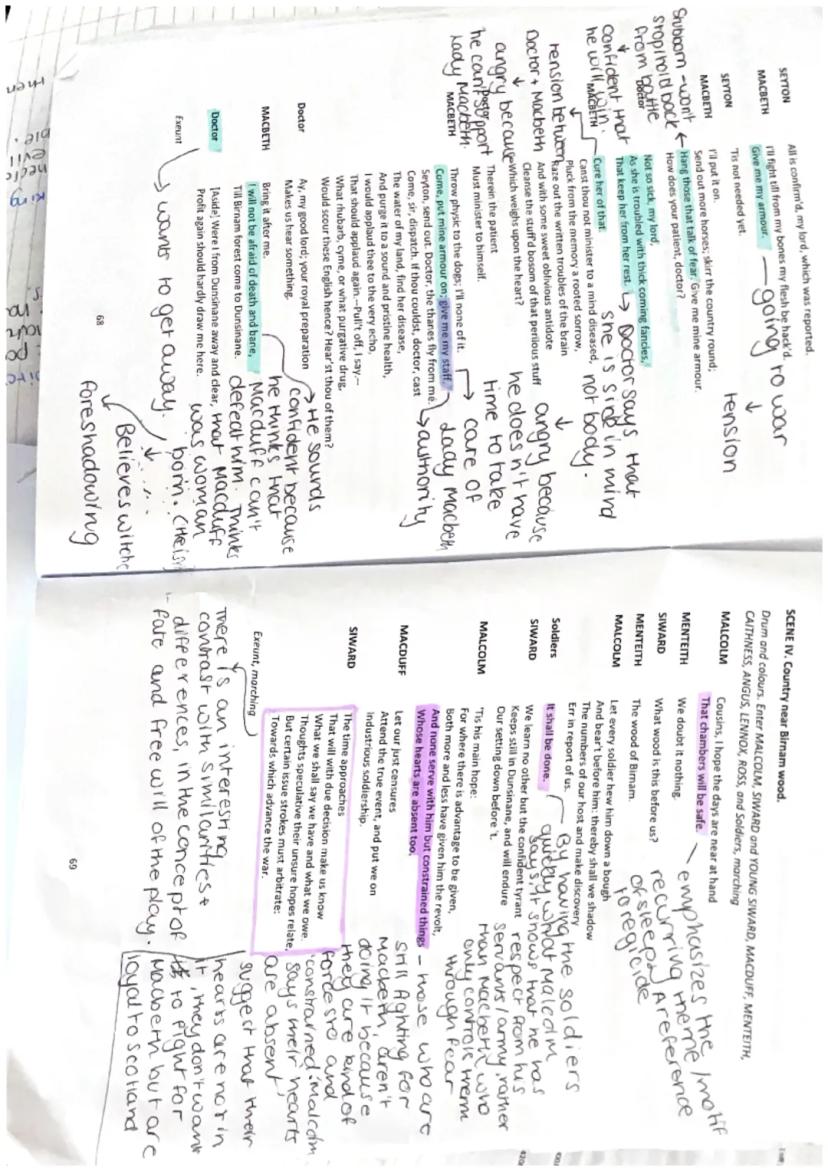 SEYTON
All is confirm'd, my lord, which was reported.
MACBETH
I'll fight till from my bones my flesh be hack'd.
Give me my armour.
going to war
tension
SEYTON
'Tis not needed yet.
MACBETH
I'll put it on.
Send out more horses; skirr the country round;
Hang those that talk of fear. Give me mine armour.
How does your patient, doctor?
Stubborn - won't
stop/hold back
from battle
confident that
he will win.
Doctor
Not so sick, my lord,
As she is troubled with thick coming fancies,
That keep her from her rest.
Doctor says that
she is sick in mind
not body.
MACBETH
Cure her of that.
Canst thou not minister to a mind diseased,
Pluck from the memory a rooted sorrow,
Raze out the written troubles of the brain
And with some sweet oblivious antidote
Cleanse the stuff'd bosom of that perilous stuff
Which weighs upon the heart?
tension between
Doctor + Macbeth
angry because
he can't support
Lady Macbeth.
angry because
he doesn't have
time to take
care of
Lady Macbeth
Doctor
Therein the patient
Must minister to himself.
MACBETH
Throw physic to the dogs; I'll none of it.
Come, put mine armour on; give me my staff.
authority
Seyton, send out. Doctor, the thanes fly from me.
Come, sir, dispatch. If thou couldst, doctor, cast
The water of my land, find her disease,
And purge it to a sound and pristine health,
I would applaud thee to the very echo,
That should applaud again.—Pull't off, I say.—
What rhubarb, cyme, or what purgative drug,
Would scour these English hence? Hear'st thou of them?
Doctor
Ay, my good lord; your royal preparation
Makes us hear something.
MACBETH
Bring it after me.
I will not be afraid of death and bane,
Till Birnam forest come to Dunsinane.
He sounds
confident because
he thinks that
Macduff can't
defeat him. Thinks
that Macduff
was woman
born.
Believes witch
foreshadowing
Doctor
[Aside] Were I from Dunsinane away and clear,
Profit again should hardly draw me here.
Exeunt
wants to get away.
68
SCENE IV. Country near Birnam wood.
Drum and colours. Enter MALCOLM, SIWARD and YOUNG SIWARD, MACDUFF, MENTEITH,
CAITHNESS, ANGUS, LENNOX, ROSS, and Soldiers, marching
MALCOLM
Cousins, I hope the days are near at hand
That chambers will be safe.
emphasizes the
recurring theme/motif
of sleep. A reference
to regicide
MENTEITH
We doubt it nothing.
SIWARD
What wood is this before us?
MENTEITH
The wood of Birnam.
MALCOLM
Let every soldier hew him down a bough
And bear't before him: thereby shall we shadow
The numbers of our host and make discovery
Err in report of us.
Soldiers
It shall be done.
By having the soldiers
quickly what Malcolm
says, it shows that he has
respect from his
servants/army, rather
than Macbeth who
only controls them
through fear
SIWARD
We learn no other but the confident tyrant
Keeps still in Dunsinane, and will endure
Our setting down before 't.
MALCOLM
'Tis his main hope:
For where there is advantage to be given,
Both more and less have given him the revolt,
And none serve with him but constrained things
Whose hearts are absent too.
- those who are
still fighting for
Macbeth, aren't
doing it because
they are kind of
forced to and
'constrained'. Malcolm
says 'their hearts
are absent'
suggest that their
hearts are not in
it, they don't want
to fight for
Macbeth but are
loyal to Scotland
MACDUFF
Let our just censures
Attend the true event, and put we on
Industrious soldiership.
SIWARD
The time approaches
That will with due decision make us know
What we shall say we have and what we owe.
Thoughts speculative their unsure hopes relate,
But certain issue strokes must arbitrate:
Towards which advance the war.
Exeunt, marching
There is an interesting
contrast with similarities +
differences, in the concept of
fate and free will of the play.
69